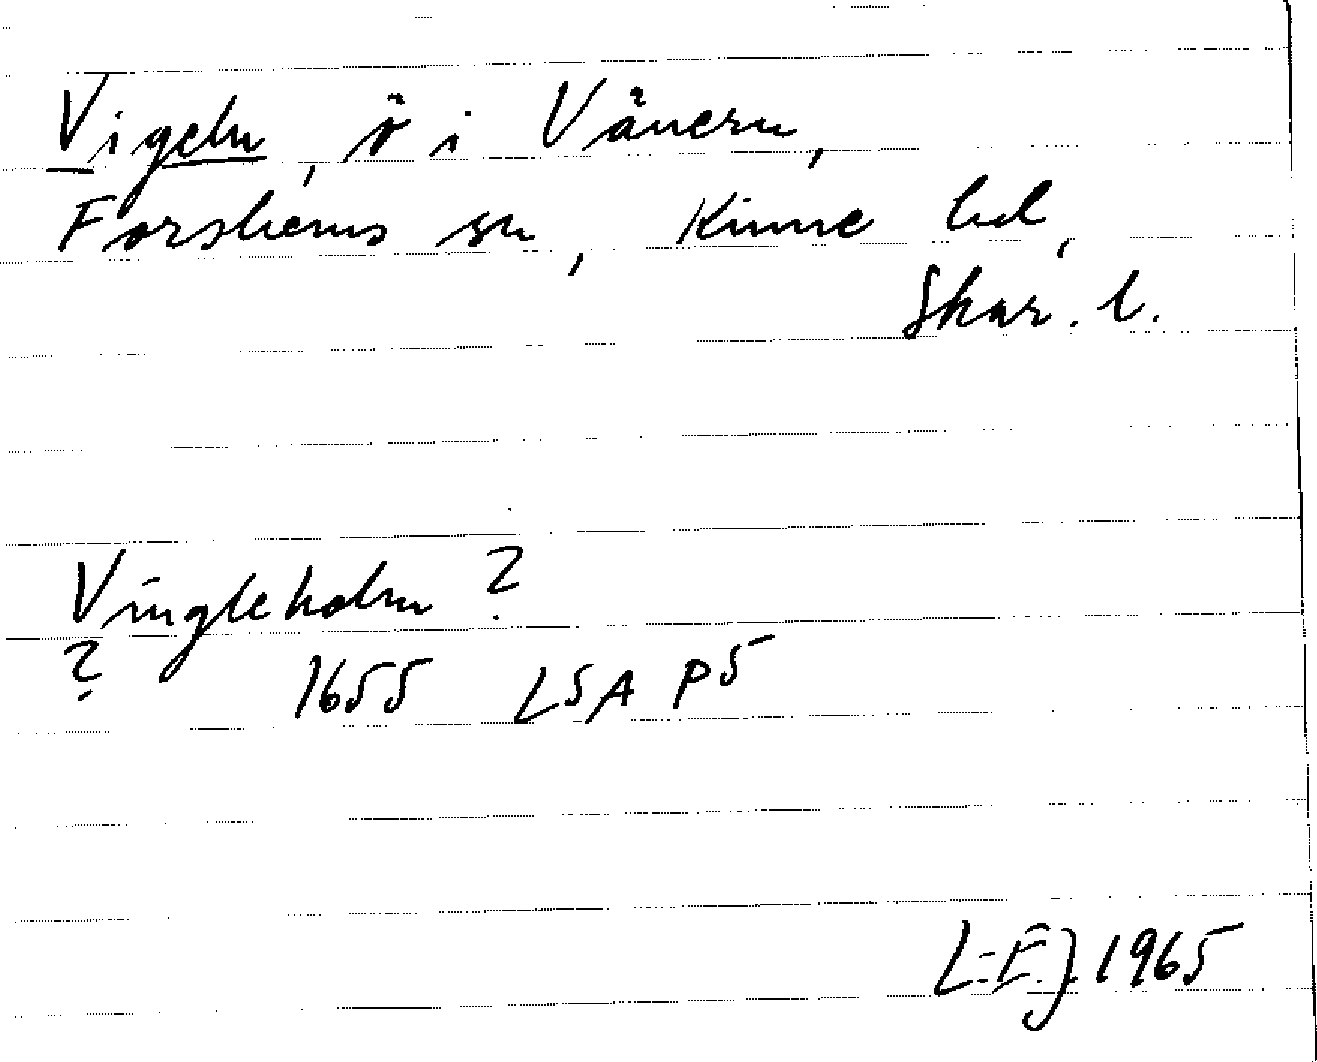 Vigeln, ö i Vänern,
Forshems sn, Kinne hd,
Skar. l.
Vingleholm ?
? 1655 LSA P5
L-EJ 1965